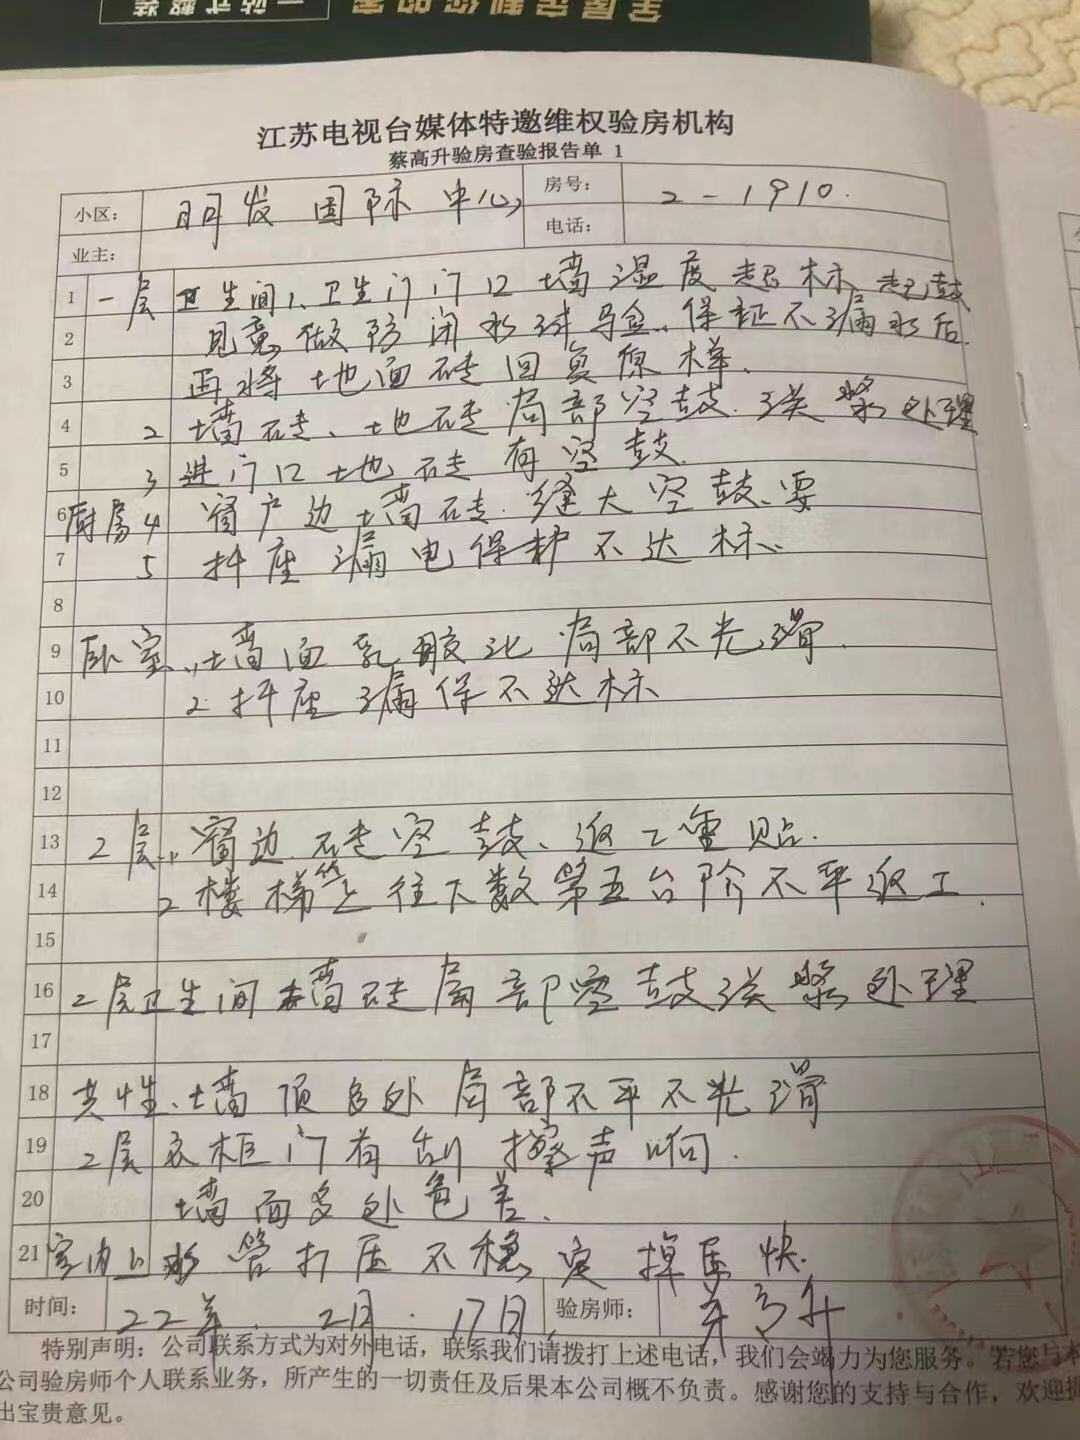 全屋定制你的家
一站式整装
江苏电视台媒体特邀维权验房机构
蔡高升验房查验报告单 1
小区: 明发国际中心 房号: 2-1910.
业主: 电话:
1 一层 卫生间1、卫生门门口墙湿度超标、起鼓
2 见意做防闭水试验、保证不漏水后
3 再将地面砖回复原样.
4 2 墙砖、地砖局部空鼓. 浆处理
5 3 进门口地砖有空鼓.
6 厨房 4 窗户边墙砖.缝大空鼓、要
7 5 抖座漏电保护不达标.
8
9 卧室、1、墙面乳胶 局部不光滑.
10 2. 抖座漏保不达标
11
12
13 2层、1、窗边砖空鼓、返工重贴.
14 2 楼梯竺往下数第五台阶不平返工.
15
16 2层卫生间墙砖局部空鼓 浆处理
17
18 共性、墙顶多处局部不平不光滑
19 2层衣柜门有刮擦声响.
20 墙面多处色差.
21 室内上水管打压不稳定掉压快.
时间: 22年.2月.17日 验房师:
特别声明：公司联系方式为对外电话，联系我们请拨打上述电话，我们会竭力为您服务。若您与本
公司验房师个人联系业务，所产生的一切责任及后果本公司概不负责。感谢您的支持与合作，欢迎提
出宝贵意见。